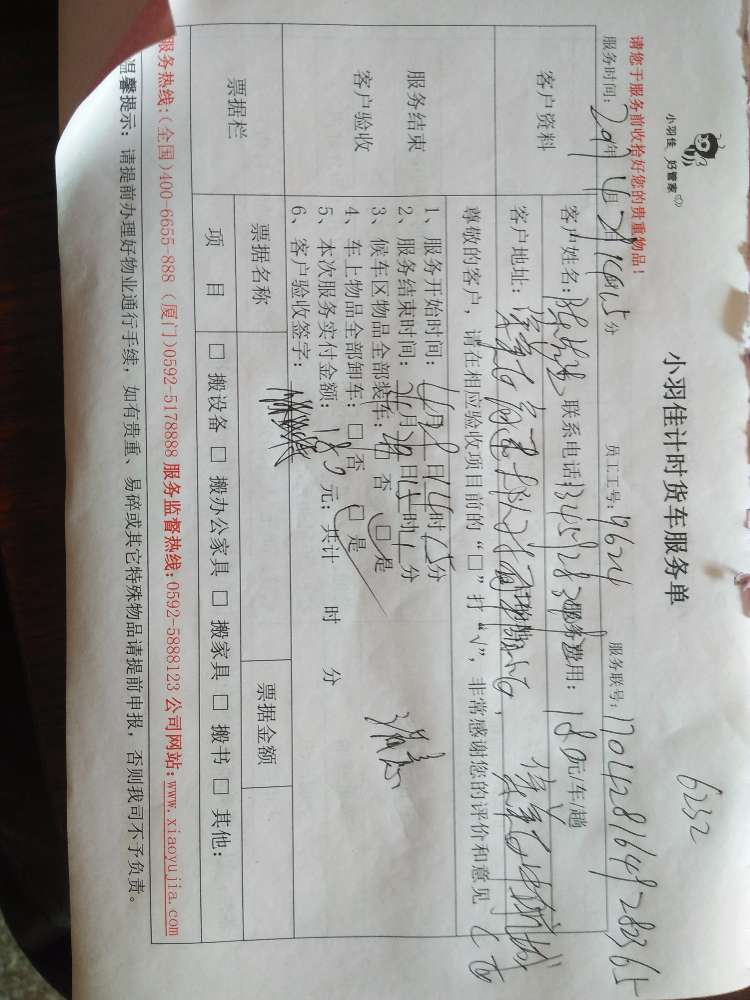 小羽佳 好管家
6232
小羽佳计时货车服务单
请您于服务前收拾好您的贵重物品!
服务时间: 2017年4月28日16时15分 员工工号: 9624 服务联号: 1704281649282365
客户资料
客户姓名: 陈先生 联系电话: 服务费用: 180元/车/趟
客户地址:
服务结束
客户验收
尊敬的客户，请在相应验收项目前的“□”打“√”，非常感谢您的评价和意见
1、服务开始时间: 4月28日16时15分
2、服务结束时间: 月 日 时 分
3、候车区物品全部装车: □ 否 □ 是
4、车上物品全部卸车: □ 否 □ 是
5、本次服务实付金额: 180元; 共计 时 分
6、客户验收签字:
满意
票据栏
票据名称 票据金额
项 目 □ 搬设备 □ 搬办公家具 □ 搬家具 □ 搬书 □ 其他:
服务热线:(全国)400-6655-888 (厦门)0592-5178888 服务监督热线: 0592-5888123 公司网站: www.xiaoyujia.com
温馨提示: 请提前办理好物业通行手续，如有贵重、易碎或其它特殊物品请提前申报，否则我司不予负责。